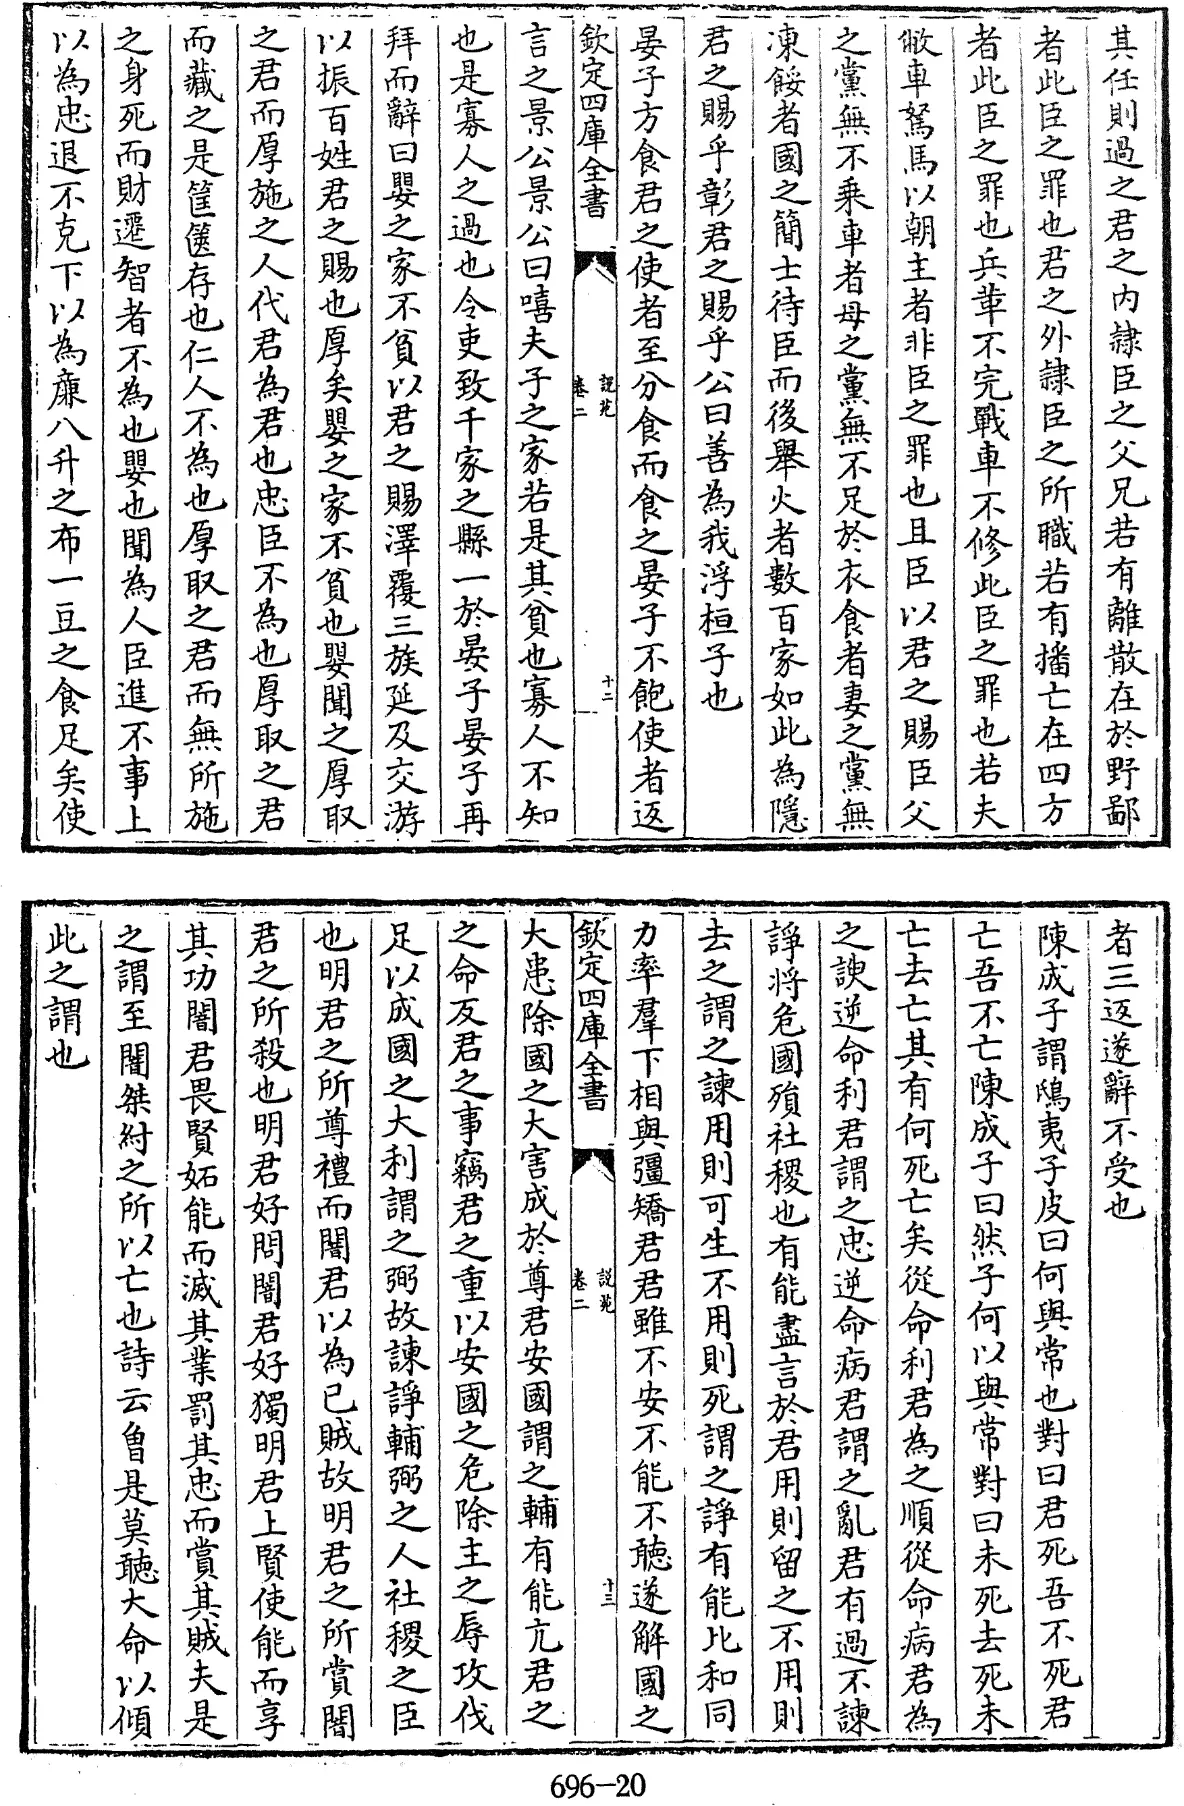 其任則過之君之内隷臣之父兄若有離散在於野鄙
者此臣之罪也君之外隷臣之所職若有播亡在四方
者此臣之罪也兵革不完戰車不修此臣之罪也若夫
敝車駑馬以朝主者非臣之罪也且臣以君之賜臣父
之黨無不乗車者母之黨無不足於衣食者妻之黨無
凍餒者國之簡士待臣而後舉火者數百家如此為隱
君之賜乎彰君之賜乎公曰善為我浮桓子也
晏子方食君之使者至分食而食之晏子不飽使者返
欽定四庫全書
説苑
卷二
十二
言之景公景公曰嘻夫子之家若是其貧也寡人不知
也是寡人之過也令吏致千家之縣一於晏子晏子再
拜而辭曰嬰之家不貧以君之賜澤覆三族延及交游
以振百姓君之賜也厚矣嬰之家不貧也嬰聞之厚取
之君而厚施之人代君為君也忠臣不為也厚取之君
而藏之是筐篋存也仁人不為也厚取之君而無所施
之身死而財遷智者不為也嬰也聞為人臣進不事上
以為忠退不克下以為亷八升之布一豆之食足矣使
者三返遂辭不受也
陳成子謂鴟夷子皮曰何與常也對曰君死吾不死君
亡吾不亡陳成子曰然子何以與常對曰未死去死未
亡去亡其有何死亡矣從命利君為之順從命病君為
之諛逆命利君謂之忠逆命病君謂之亂君有過不諫
諍將危國殞社稷也有能盡言於君用則留之不用則
去之謂之諫用則可生不用則死謂之諍有能比和同
力率羣下相與彊矯君君雖不安不能不聽遂解國之
欽定四庫全書
説苑
卷二
十三
大患除國之大害成於尊君安國謂之輔有能亢君之
之命反君之事竊君之重以安國之危除主之辱攻伐
足以成國之大利謂之弼故諫諍輔弼之人社稷之臣
也明君之所尊禮而闇君以為已賊故明君之所賞闇
君之所殺也明君好問闇君好獨明君上賢使能而享
其功闇君畏賢妬能而滅其業罰其忠而賞其賊夫是
之謂至闇桀紂之所以亡也詩云曽是莫聽大命以傾
此之謂也
696-20